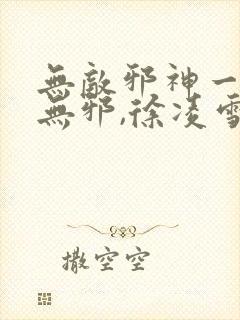 無敵邪神一
無邪,徐凌雪
撒空空